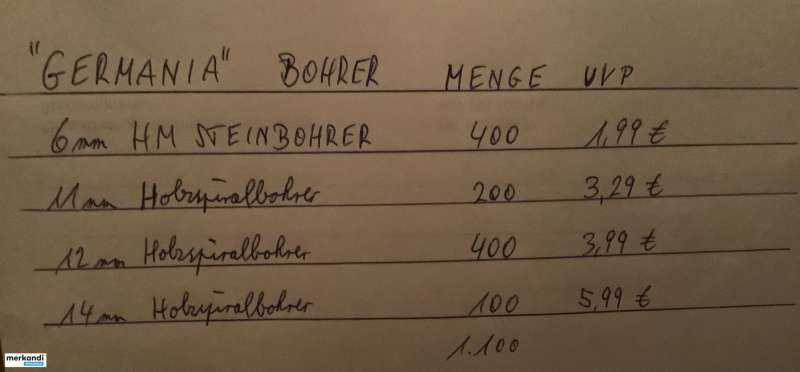 "GERMANIA" BOHRER MENGE UVP
6mm HM STEINBOHRER 400 1,99 €
11mm Holzspiralbohrer 200 3,29 €
12mm Holzspiralbohrer 400 3,99 €
14mm Holzspiralbohrer 100 5,99 €
1.100
merkandi